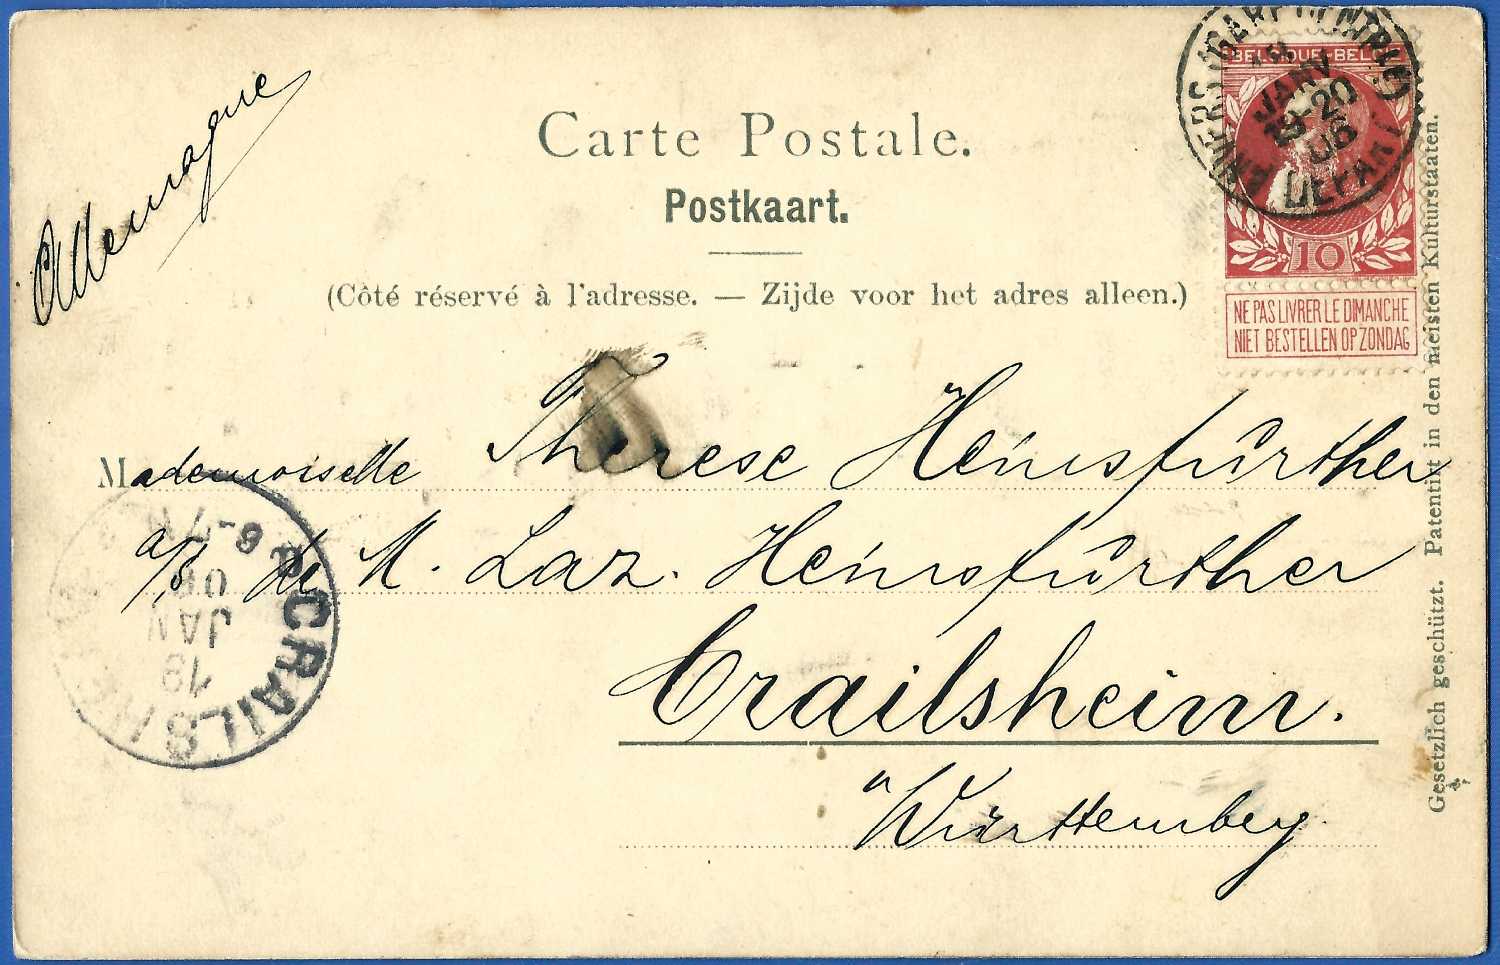 Allemagne
Carte Postale.
Postkaart.
(Côté réservé à l'adresse. — Zijde voor het adres alleen.)
ANVERS (GARE CENTRALE)
JANV
19-20
06
DEPART
BELGIQUE-BELGIË
10
NE PAS LIVRER LE DIMANCHE
NIET BESTELLEN OP ZONDAG
Mademoiselle Therese Heinsfürther
a/s de M. Laz. Heinsfürther
Crailsheim.
Württemberg
CRAILSHEIM
19
JAN
06
6-7N
Gesetzlich geschützt. Patentirt in den meisten Kulturstaaten.